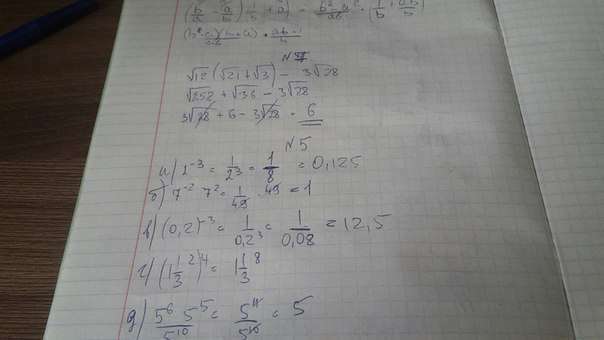 (b/a - a/b)
(b²-a²)(b+a)/ab · ab-1/b
√12 (√21 + √3) - 3√28
√252 + √36 - 3√28
3√28 + 6 - 3√28 = 6
N5
а) 2^-3 = 1/2^3 = 1/8 = 0,125
б) 7^-2 7^2 = 1/49 · 49 = 1
в) (0,2)^-3 = 1/0,2^3 = 1/0,08 = 12,5
г) (1 1/3^2)^4 = 1 1/3^8
д) 5^6 5^5/5^10 = 5^11/5^10 = 5